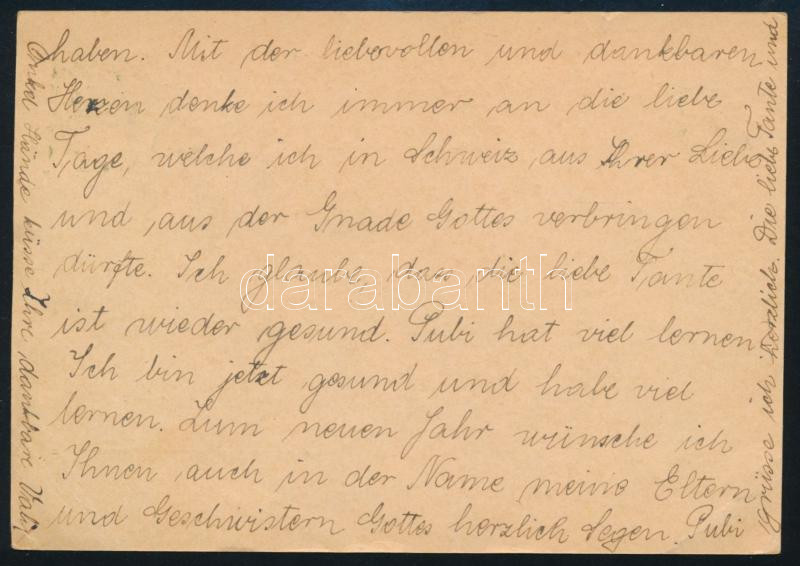 haben. Mit der liebevollen und dankbaren
Herzen denke ich immer an die liebe
Tage, welche ich in Schweiz aus Ihrer Liebe
und aus der Gnade Gottes verbringen
dürfte. Ich glaube, das die liebe Tante
ist wieder gesund. Pubi hat viel lernen
Ich bin jetzt gesund und habe viel
lernen. Zum neuen Jahr wünsche ich
Ihnen auch in der Name meine Eltern
und Geschwistern Gottes herzlich Segen. Pubi
grüsse ich herzlich. Die liebe Tante und
Onkel Hände küsse Ihre dankbare Vali
darabanth